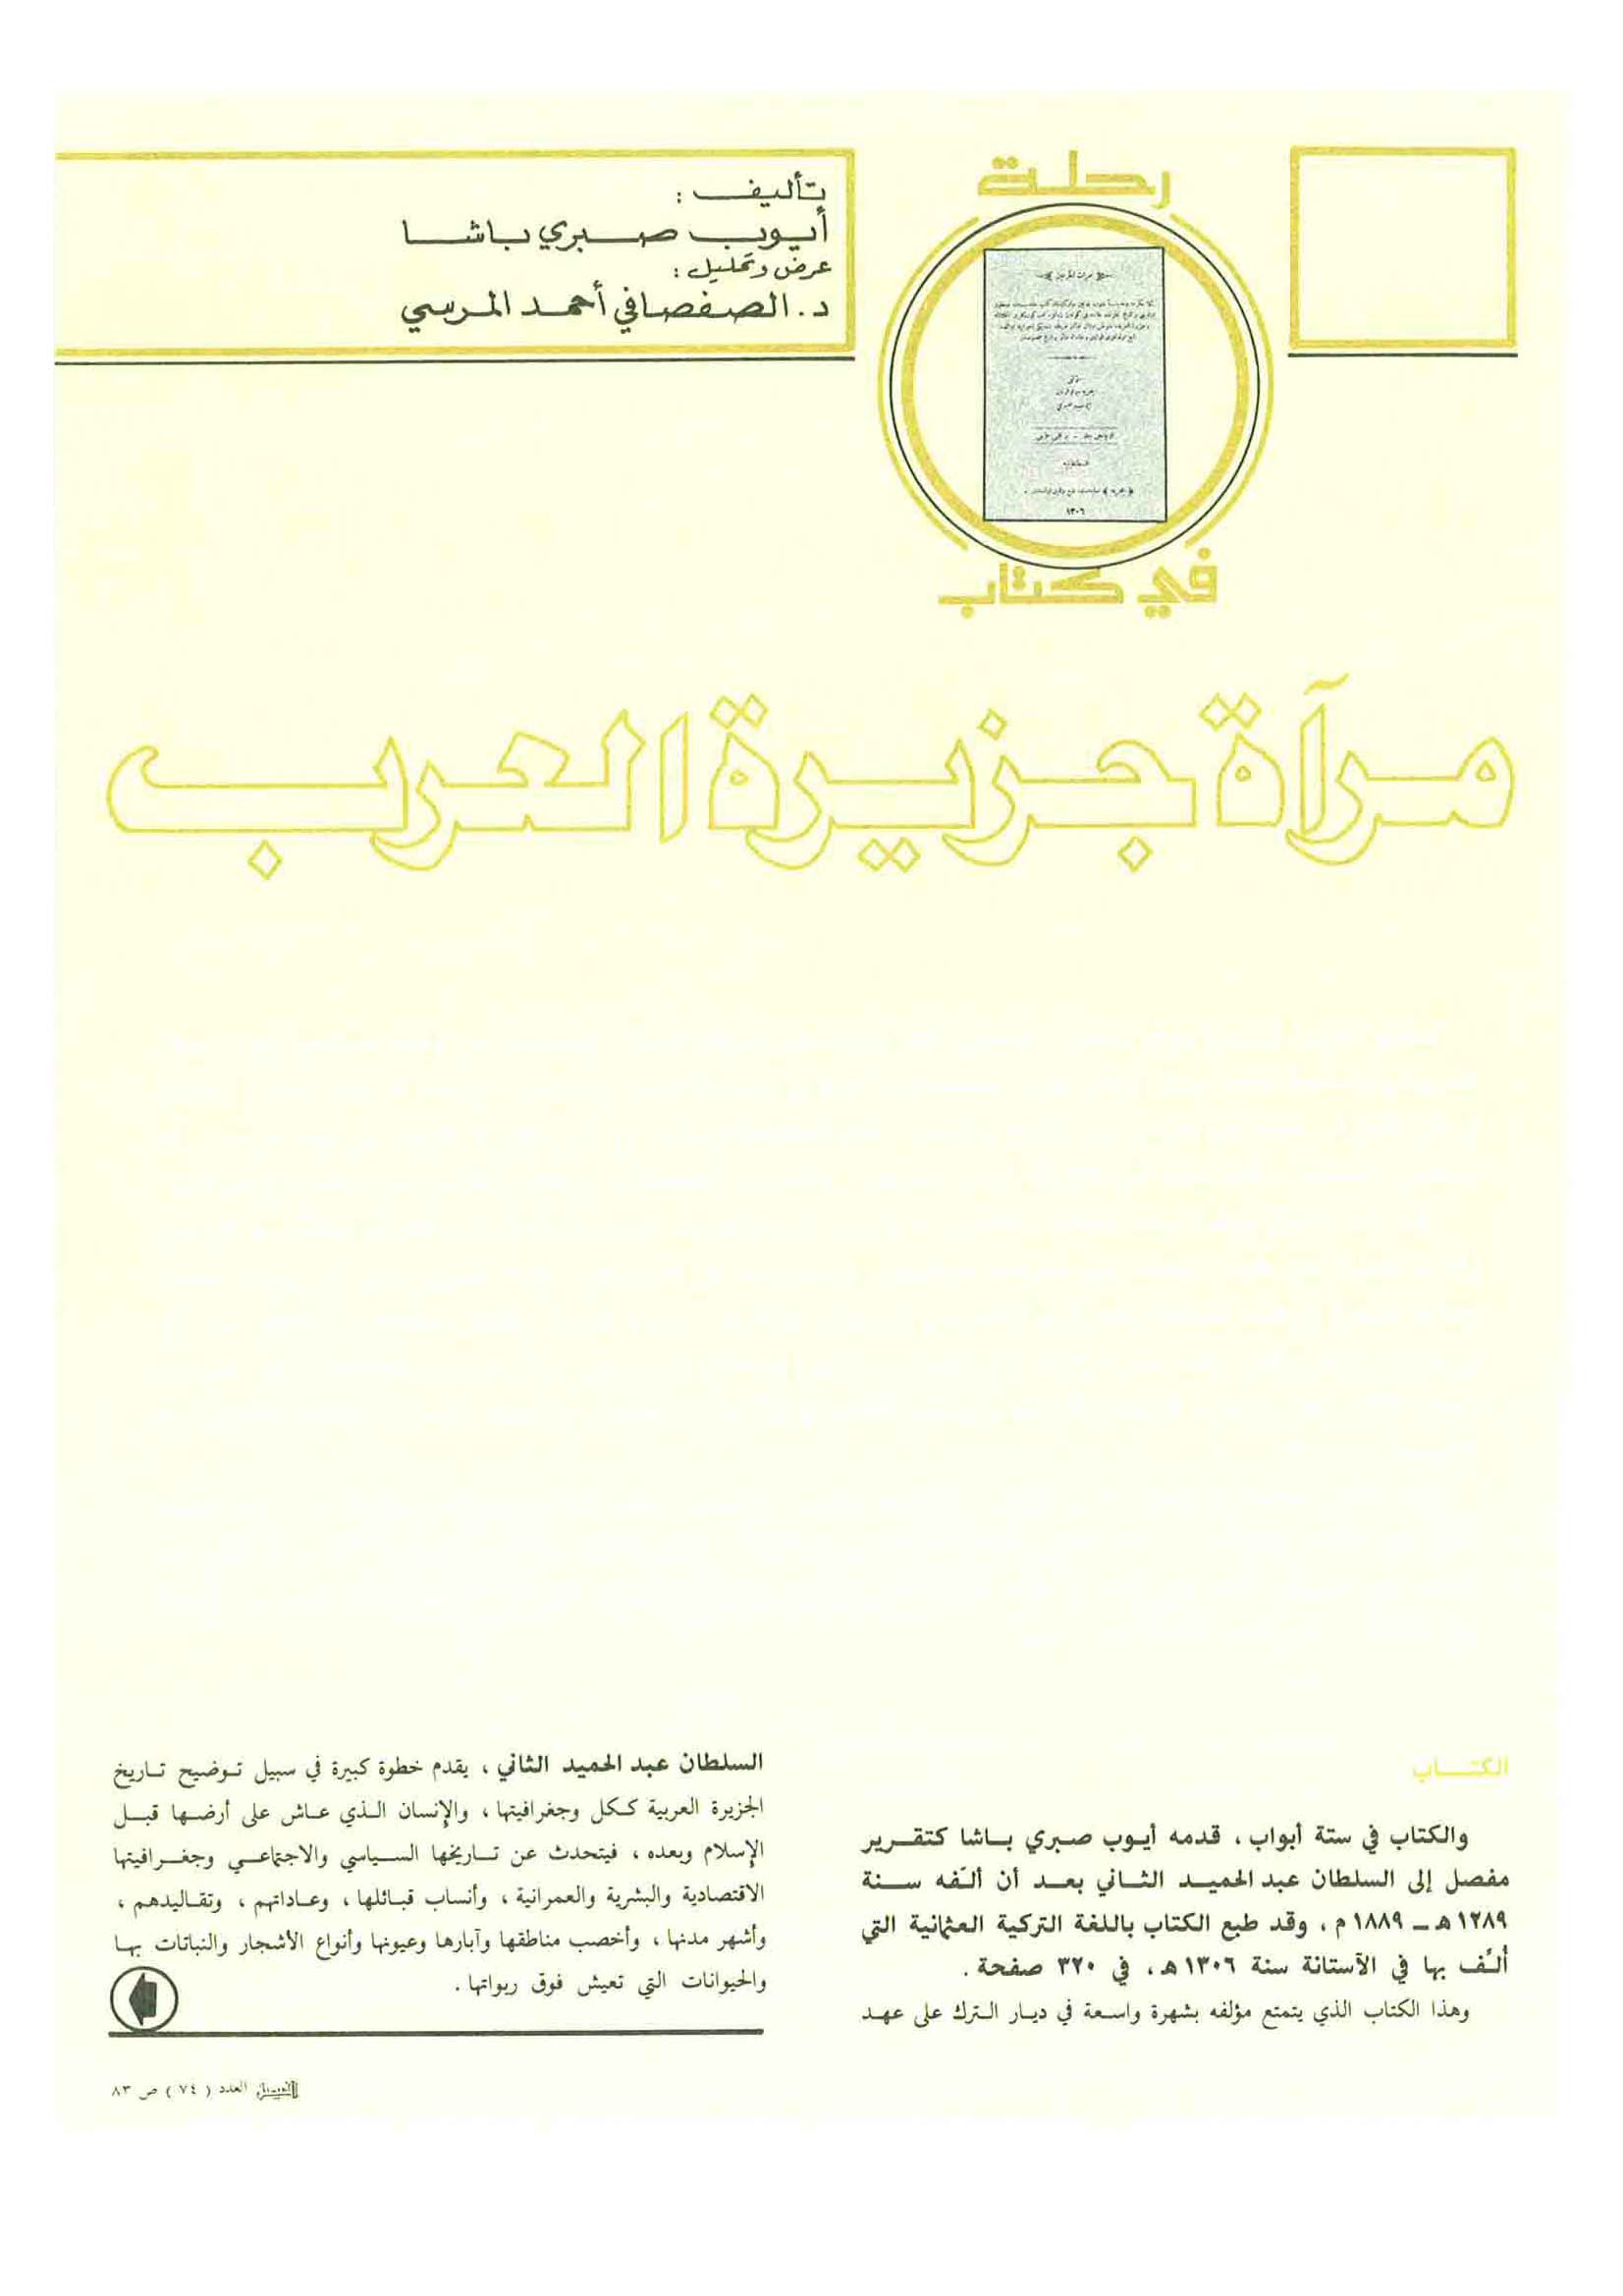 رحلة
في كتاب
تأليف :
أيوب صبري باشا
عرض وتحليل :
د. الصفصافي أحمد المرسي
١٣٠٦
مرآة جزيرة العرب
الكتاب
والكتاب في ستة أبواب ، قدمه أيوب صبري باشا كتقرير
مفصل إلى السلطان عبد الحميد الثاني بعد أن ألّفه سنة
١٢٨٩ هـ – ١٨٨٩ م ، وقد طبع الكتاب باللغة التركية العثمانية التي
ألّف بها في الآستانة سنة ١٣٠٦ هـ ، في ٣٢٠ صفحة .
وهذا الكتاب الذي يتمتع مؤلفه بشهرة واسعة في ديار الترك على عهد
السلطان عبد الحميد الثاني ، يقدم خطوة كبيرة في سبيل توضيح تاريخ
الجزيرة العربية ككل وجغرافيتها ، والإنسان الذي عاش على أرضها قبل
الإسلام وبعده ، فيتحدث عن تاريخها السياسي والاجتماعي وجغرافيتها
الاقتصادية والبشرية والعمرانية ، وأنساب قبائلها ، وعاداتهم ، وتقاليدهم ،
وأشهر مدنها ، وأخصب مناطقها وآبارها وعيونها وأنواع الأشجار والنباتات بها
والحيوانات التي تعيش فوق ربواتها .
الفيصل العدد ( ٧٤ ) ص ٨٣